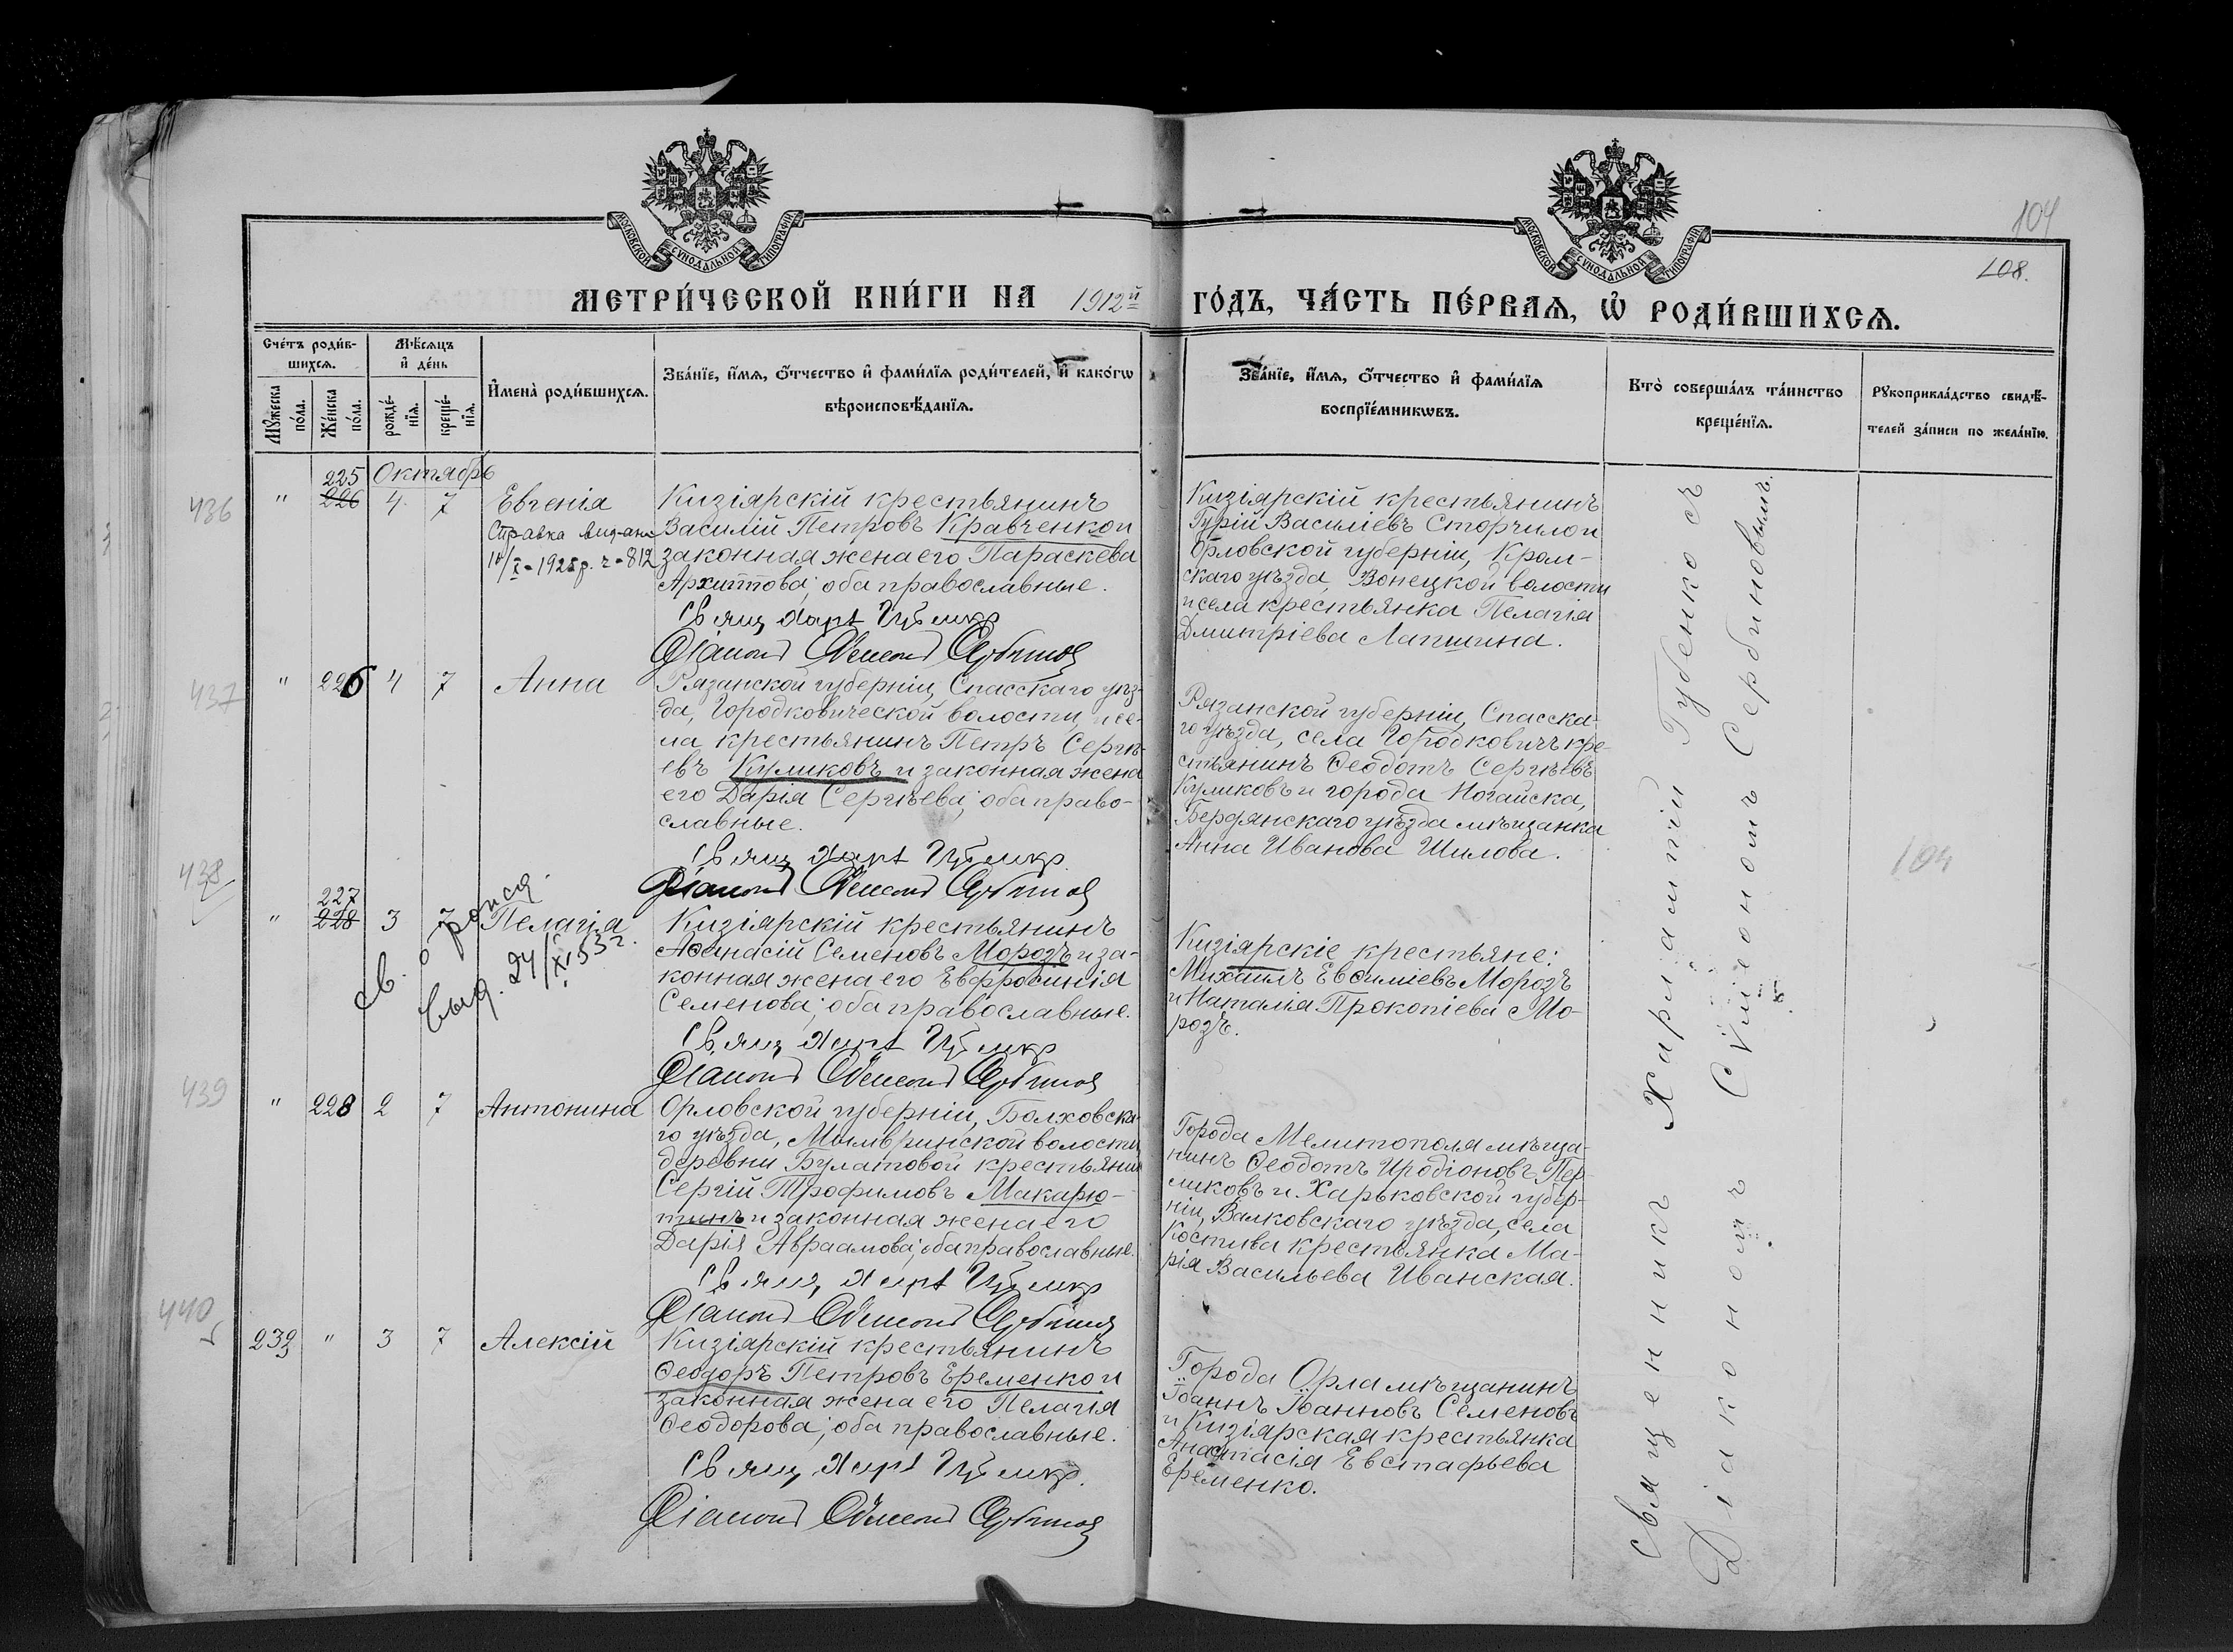 МОСКОВСКОЙ СѴНОДАЛЬНОЙ ТИПОГРАФІИ
МОСКОВСКОЙ СѴНОДАЛЬНОЙ ТИПОГРАФІИ
104
108.
МЕТРИ́ЧЕСКОЙ КНИ́ГИ НА 1912й
ГО́ДЪ, ЧА́СТЬ ПЕ́РВАѦ, Ѡ҆ РОДИ́ВШИХСѦ.
Сче́тъ роди́в-
шихсѧ.
Мꙋ́жеска по́ла.
Же́нска по́ла.
Мѣ́сѧцъ
и҆ де́нь
рожде́-
нїѧ.
креще́-
нїѧ.
И҆мена̀ роди́вшихсѧ.
Зва́нїе, и҆́мѧ, ѻ҆́тчество и҆ фами́лїѧ роди́телей, и҆ како́гѡ
вѣроисповѣ́данїѧ.
Зва́нїе, и҆́мѧ, ѻ҆́тчество и҆ фами́лїѧ
воспрїе́мникѡвъ.
Кто̀ соверша́лъ та́инство
креще́нїѧ.
Рꙋкоприкла́дство свидѣ́-
телей за́писи по жела́нїю.
Октябрь
436
"
225
226
4
7
Евгенія
Справка выдана
10/X-1928р. ч-812
Кизіярскій крестьянинъ
Василій Петровъ Кравченко и
законная жена его Параскева
Архиппова; оба православные.
Свящ Харл Губенко
Діаконъ Сѵмеонъ Сербиновъ
Кизіярскій крестьянинъ
Гурій Василіевъ Сторчило и
Орловской губерніи, Кром-
скаго уѣзда, Вонецкой волости
и села крестьянка Пелагія
Дмитріева Лапшина.
437
"
226
4
7
Анна
Рязанской губерніи, Спасскаго уѣз-
да, Городковической волости, и се-
ла крестьянинъ Петръ Сергѣ-
евъ Куликовъ и законная жена
его Дарія Сергѣева; оба право-
славные.
Свящ Харл Губенко
Діаконъ Сѵмеонъ Сербиновъ
Рязанской губерніи, Спасска-
го уѣзда, села Городковичъ кре-
стьянинъ Ѳеодотъ Сергѣевъ
Куликовъ и города Ногайска,
Бердянскаго уѣзда мѣщанка
Анна Иванова Шилова.
104
438
"
227
228
3
7
Пелагія
св. о рожд.
выд. 24/XI 53 г.
Кизіярскій крестьянинъ
Аѳанасій Семеновъ Морозъ и за-
конная жена его Евфросинія
Семенова; оба православные.
Свящ Харл Губенко
Діаконъ Сѵмеонъ Сербиновъ
Кизіярскіе крестьяне:
Михаилъ Евѳиміевъ Морозъ
и Наталія Прокопіева Мо-
розъ.
439
"
228
2
7
Антонина
Орловской губерніи, Болховска-
го уѣзда, волости
деревни Булатовой крестьянинъ
Сергій Трофимовъ Макарю-
тинъ и законная жена его
Дарія Авраамова; оба православные.
Свящ Харл Губенко
Діаконъ Сѵмеонъ Сербиновъ
Города Мелитополя мѣща-
нинъ Ѳеодотъ Иродіоновъ
и Харьковской губер-
ніи, Валковскаго уѣзда, села
крестьянка Ма-
рія Васильева Иванская.
440
232
"
3
7
Алексій
Кизіярскій крестьянинъ
Ѳеодоръ Петровъ Еременко и
законная жена его Пелагія
Ѳеодорова; оба православные.
Свящ. Харл Губенко
Діаконъ Сѵмеонъ Сербиновъ
Города Орла мѣщанинъ
Іоаннъ Іоанновъ Семеновъ
и Кизіярская крестьянка
Анастасія Евстафьева
Еременко.
Священникъ Харлампій Губенко съ
Діакономъ Сѵмеономъ Сербиновымъ.